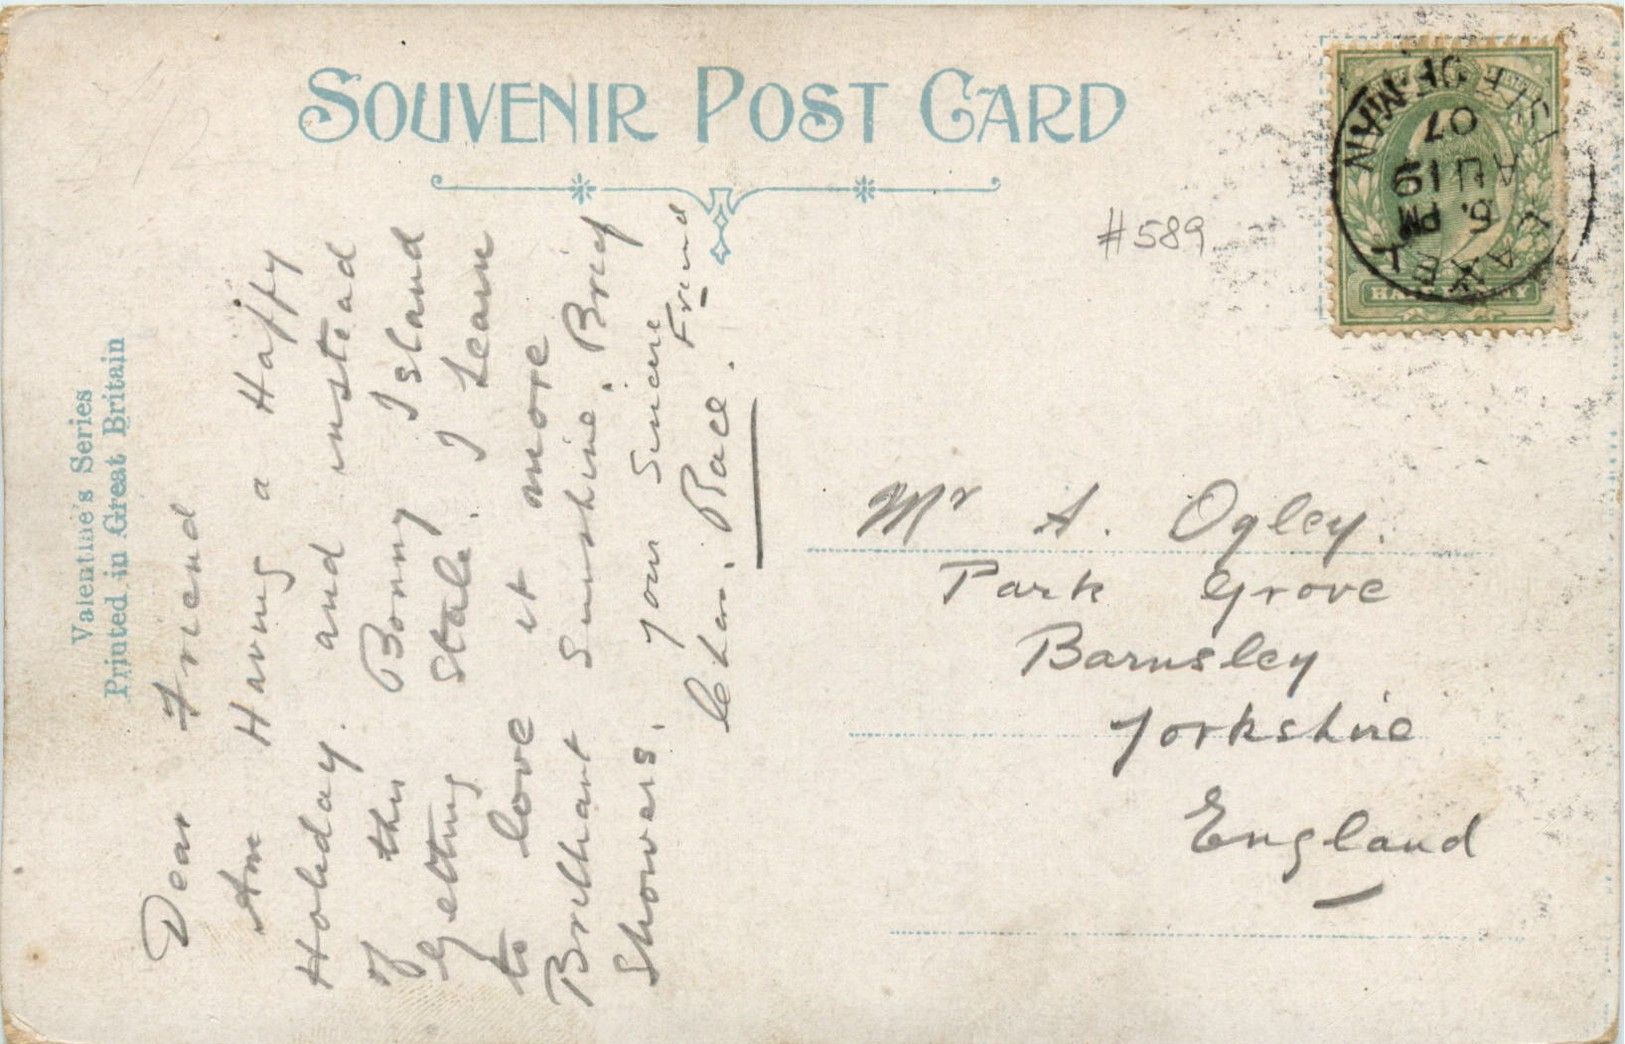 SOUVENIR POST CARD
Valentine's Series
Printed in Great Britain
#589
LAXEY
5. PM
AU 19
07
ISLE OF MAN
HALFPENNY
Dear Friend
Am Having a Happy
Holiday. and instead
of this Bonny Island
Getting Stale. I Learn
to love it more
Brilliant Sunshine. Brief
Showers. Your Sincere Friend
Chas. Race.
Mr A. Ogley.
Park Grove
Barnsley
Yorkshire
England